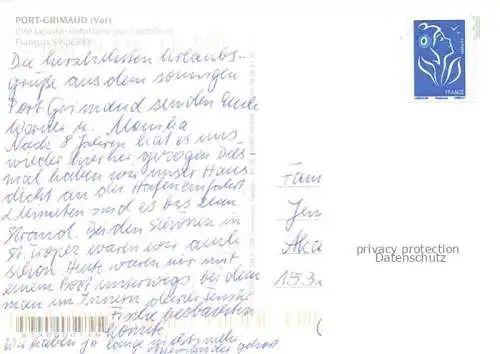 PORT-GRIMAUD (Var)
Cité lacustre construite par l'architecte
François SPOERRY
Die herzlichsten Urlaubs-
grüße aus dem sonnigen
Port Grimaud senden Euch
Werner u. Monika
Nach 8 Jahren hat es uns
wieder hierher gezogen Dies-
mal haben wir unser Haus
dicht an der Hafeneinfahrt
2 Minuten sind es bis zum
Strand. Bei den
St. Tropez waren wir auch
schon. Heute waren wir mit
einem Boot unterwegs, bei dem
man im Innern
Fische beobachten
konnte.
Wir haben ja lange nichts mehr
voneinander gehört
FRANCE
Fam
Jen
153
privacy protection
Datenschutz